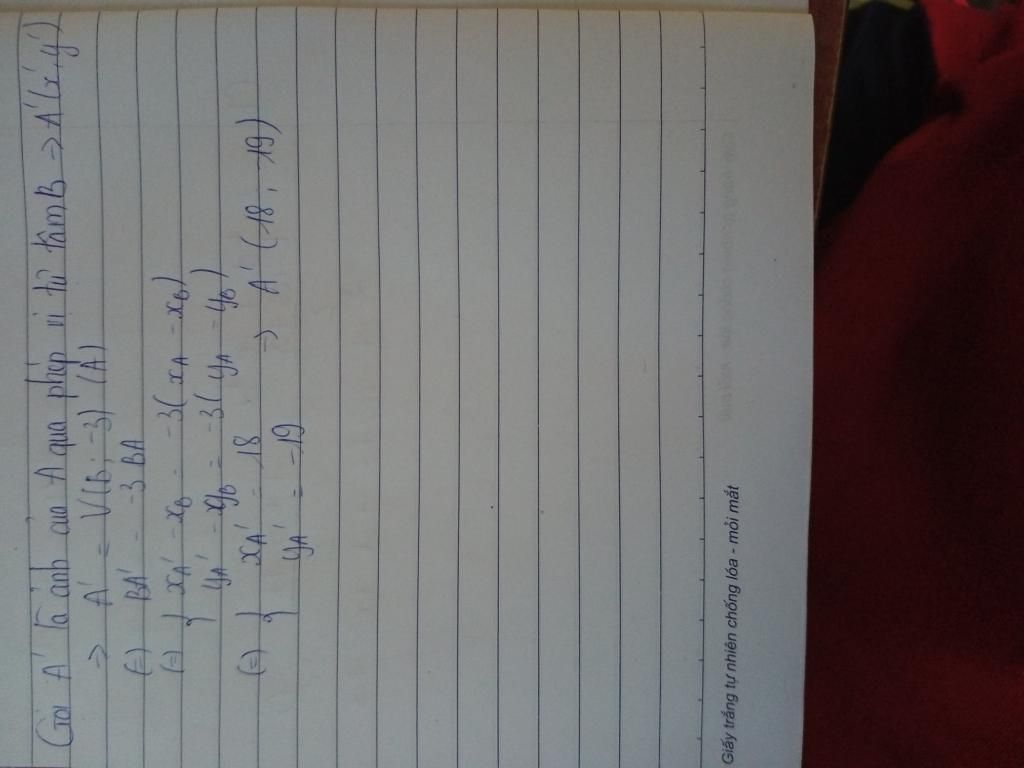 Gọi A' là ảnh của A qua phép vị tự tâm B => A'(x';y')
=> A' = V(B;-3) (A)
(=) BA' = -3 BA
(=) { xA' - xB = -3(xA - xB)
yA' - yB = -3(yA - yB)
(=) { xA' = 18 => A' (18; -19)
yA' = -19
Giấy trắng tự nhiên chống lóa - mỏi mắt